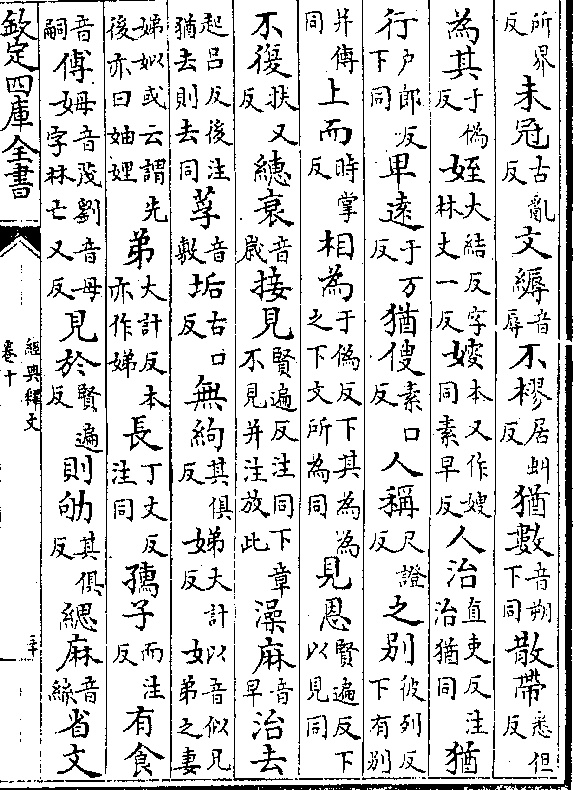 所界反未冠古亂反文縟音辱不樛居虯反猶數音朔下同散帶悉但反
為其于偽反姪大結反字林丈一反㛮本又作嫂同素早反人治直吏反注治猶同猶
行戶郎反下同卑遠于万反猶傁素口反人稱尺證反之别彼列反下有别
并傳同上而時掌反相為于偽反下其為為之下文所為同見恩賢遍反下以見同
不復扶又反繐衰音歲接見賢遍反注同下章不見并注放此澡麻音早治去
起呂反後注猶去則去同莩音敷垢古口反無絇其俱反娣大計反姒音似兄弟之妻
娣姒或云謂先後亦曰妯娌弟大計反本亦作娣長丁丈反注同孺子而注反有食
音嗣傅姆音茂劉音母字林亡又反見於賢遍反則劬其俱反緦麻音絲省文
欽定四庫全書
經典釋文
卷十
三十